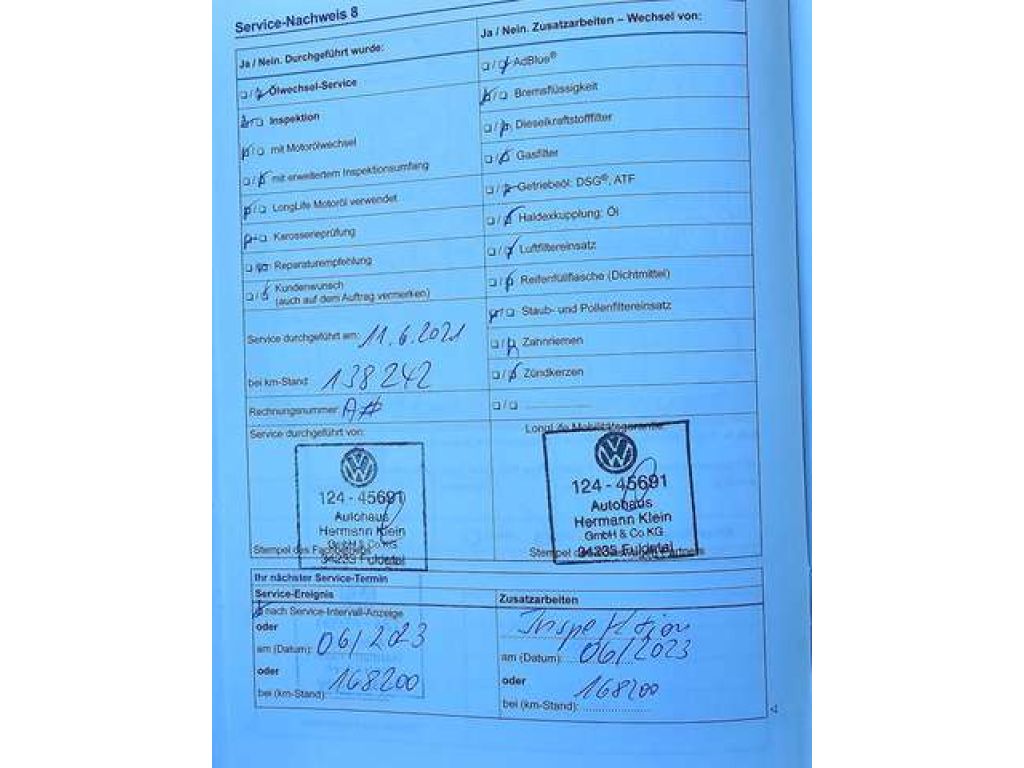 Service-Nachweis 8
Ja / Nein. Durchgeführt wurde:
□ / □ Ölwechsel-Service
□ / □ Inspektion
□ / □ mit Motorölwechsel
□ / □ mit erweitertem Inspektionsumfang
□ / □ LongLife Motoröl verwendet
□ / □ Karosserieprüfung
□ / □ Reparaturempfehlung
□ / □ Kundenwunsch
(auch auf dem Auftrag vermerken)
Service durchgeführt am: 11.6.2021
bei km-Stand: 138242
Rechnungsnummer: A#
Service durchgeführt von:
124 - 45691
Autohaus
Hermann Klein
GmbH & Co KG
34233 Fuldatal
Stempel des Fachbetriebs
Ja / Nein. Zusatzarbeiten – Wechsel von:
□ / □ AdBlue®
□ / □ Bremsflüssigkeit
□ / □ Dieselkraftstofffilter
□ / □ Gasfilter
□ / □ Getriebeöl: DSG®, ATF
□ / □ Haldexkupplung: Öl
□ / □ Luftfiltereinsatz
□ / □ Reifenfüllflasche (Dichtmittel)
□ / □ Staub- und Pollenfiltereinsatz
□ / □ Zahnriemen
□ / □ Zündkerzen
□ / □
LongLife Mobilitätsgarantie
124 - 45691
Autohaus
Hermann Klein
GmbH & Co KG
34233 Fuldatal
Stempel Partners
Ihr nächster Service-Termin
Service-Ereignis
□ nach Service-Intervall-Anzeige
oder
am (Datum): 06/2023
oder
bei (km-Stand): 168200
Zusatzarbeiten
Inspektion
am (Datum): 06/2023
oder
bei (km-Stand): 168200